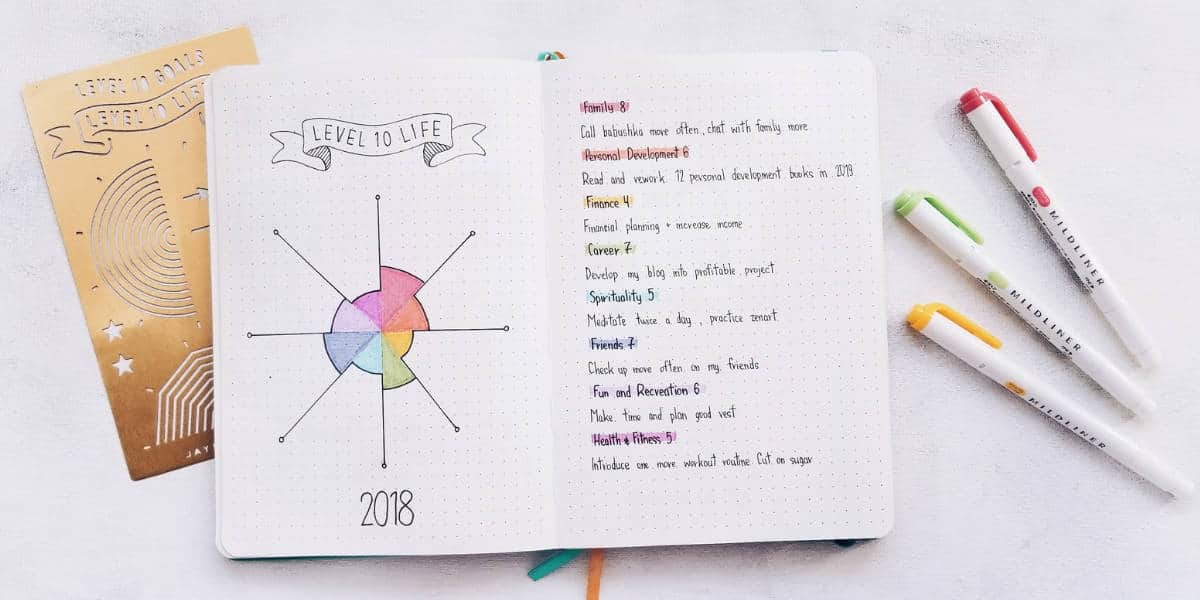 LEVEL 10 GOALS
LEVEL 10 LIFE
JAY
LEVEL 10 LIFE
2018
Family 8
Call babushka more often, chat with family more
Personal Development 6
Read and rework 12 personal development books in 2019
Finance 4
Financial planning + increase income
Career 7
Develop my blog into profitable project
Spirituality 5
Meditate twice a day, practice zenart
Friends 7
Check up more often on my friends
Fun and Recreation 6
Make time and plan good rest
Health & Fitness 5
Introduce one more workout routine. Cut on sugar
MILDLINER
MILDLINER
MILDLINER